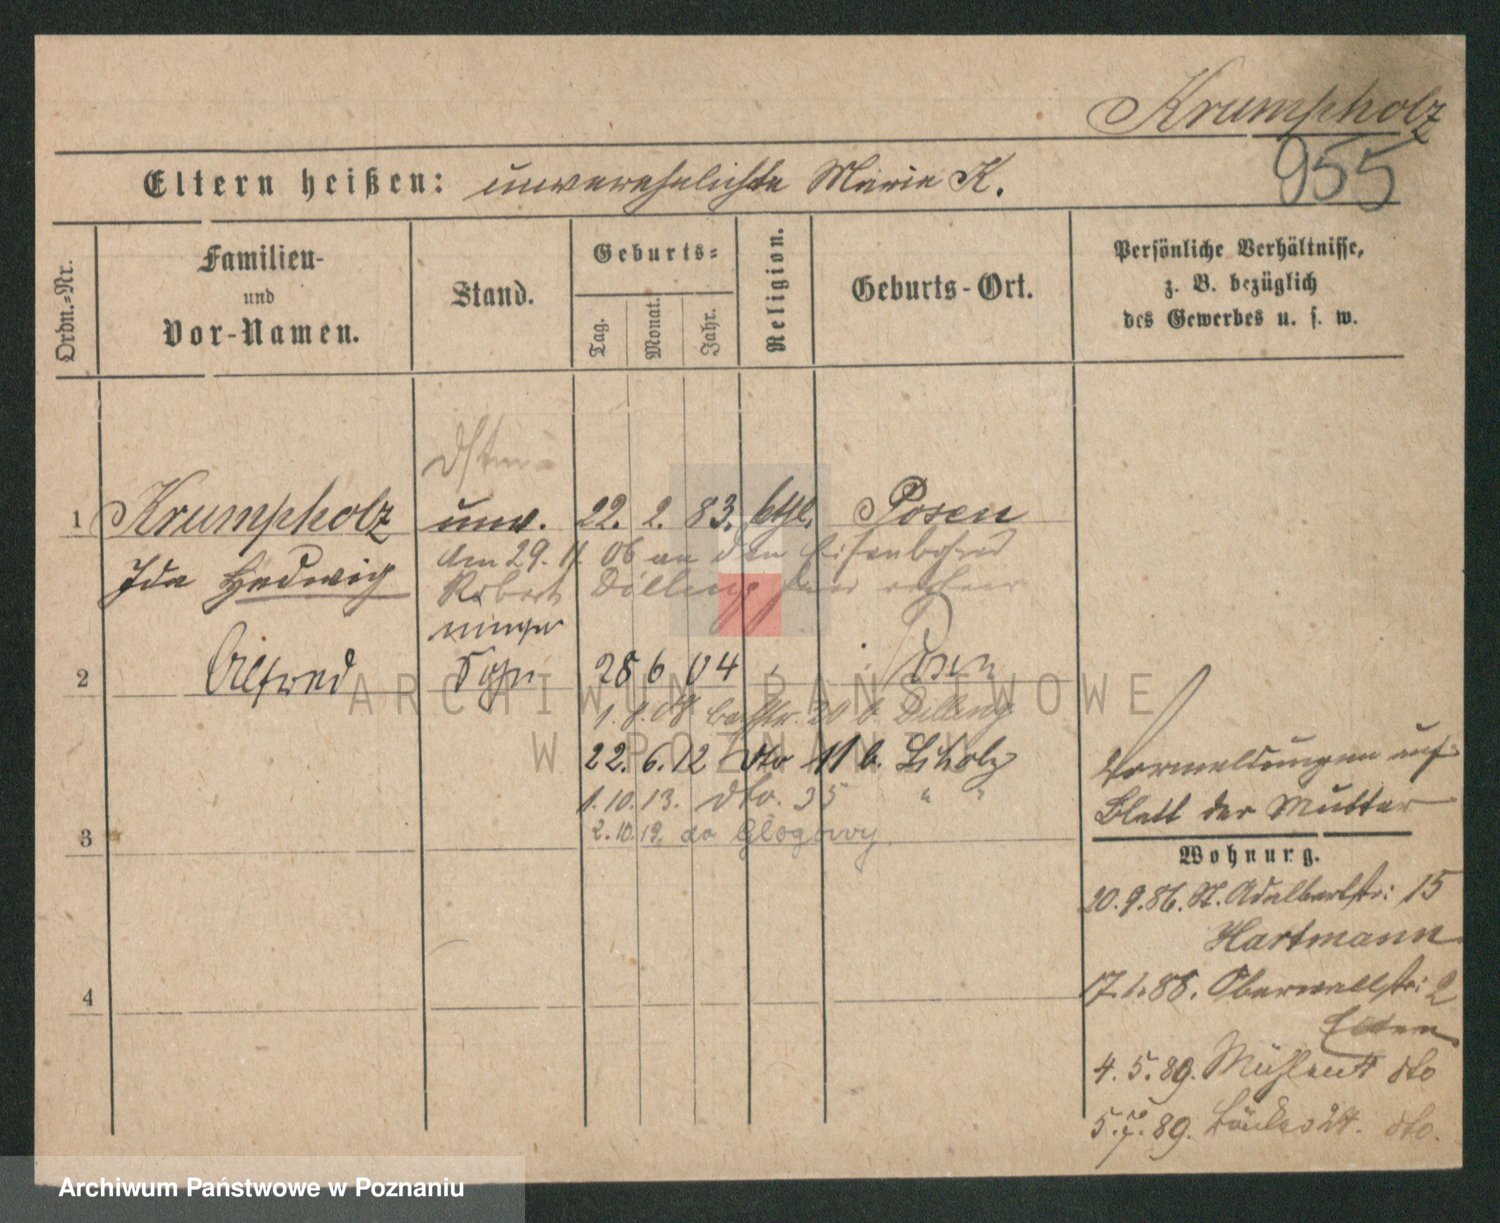 Krumpholz
955
Eltern heißen: unverehelichte Marie K.
Ordn.=Nr.
Familien-
und
Vor-Namen.
Stand.
Geburts=
Tag.
Monat.
Jahr.
Religion.
Geburts-Ort.
Persönliche Verhältnisse,
z. B. bezüglich
des Gewerbes u. s. w.
1 Krumpholz unv. 22. 2. 83. kthl. Posen
Ida Hedwig
Am 29. 11. 06 an den Eisenbahn
Robert Dilling
2 Alfred Sohn 28 6 04 Posen
1. 8. 08 20 b. Dilling
22. 6. 12 dto 11 b.
1. 10. 13. dto. 35 " "
2. 10. 19. do Głogowy
3
4
Vormeldungen auf
Blatt der Mutter
Wohnung.
20. 9. 86. St. Adalbertstr: 15
Hartmann
17. 1. 88. Oberwallstr: 2
4. 5. 89. Mühlen dto
5. 7. 89. 24. dto.
ARCHIWUM PAŃSTWOWE
W POZNANIU
Archiwum Państwowe w Poznaniu